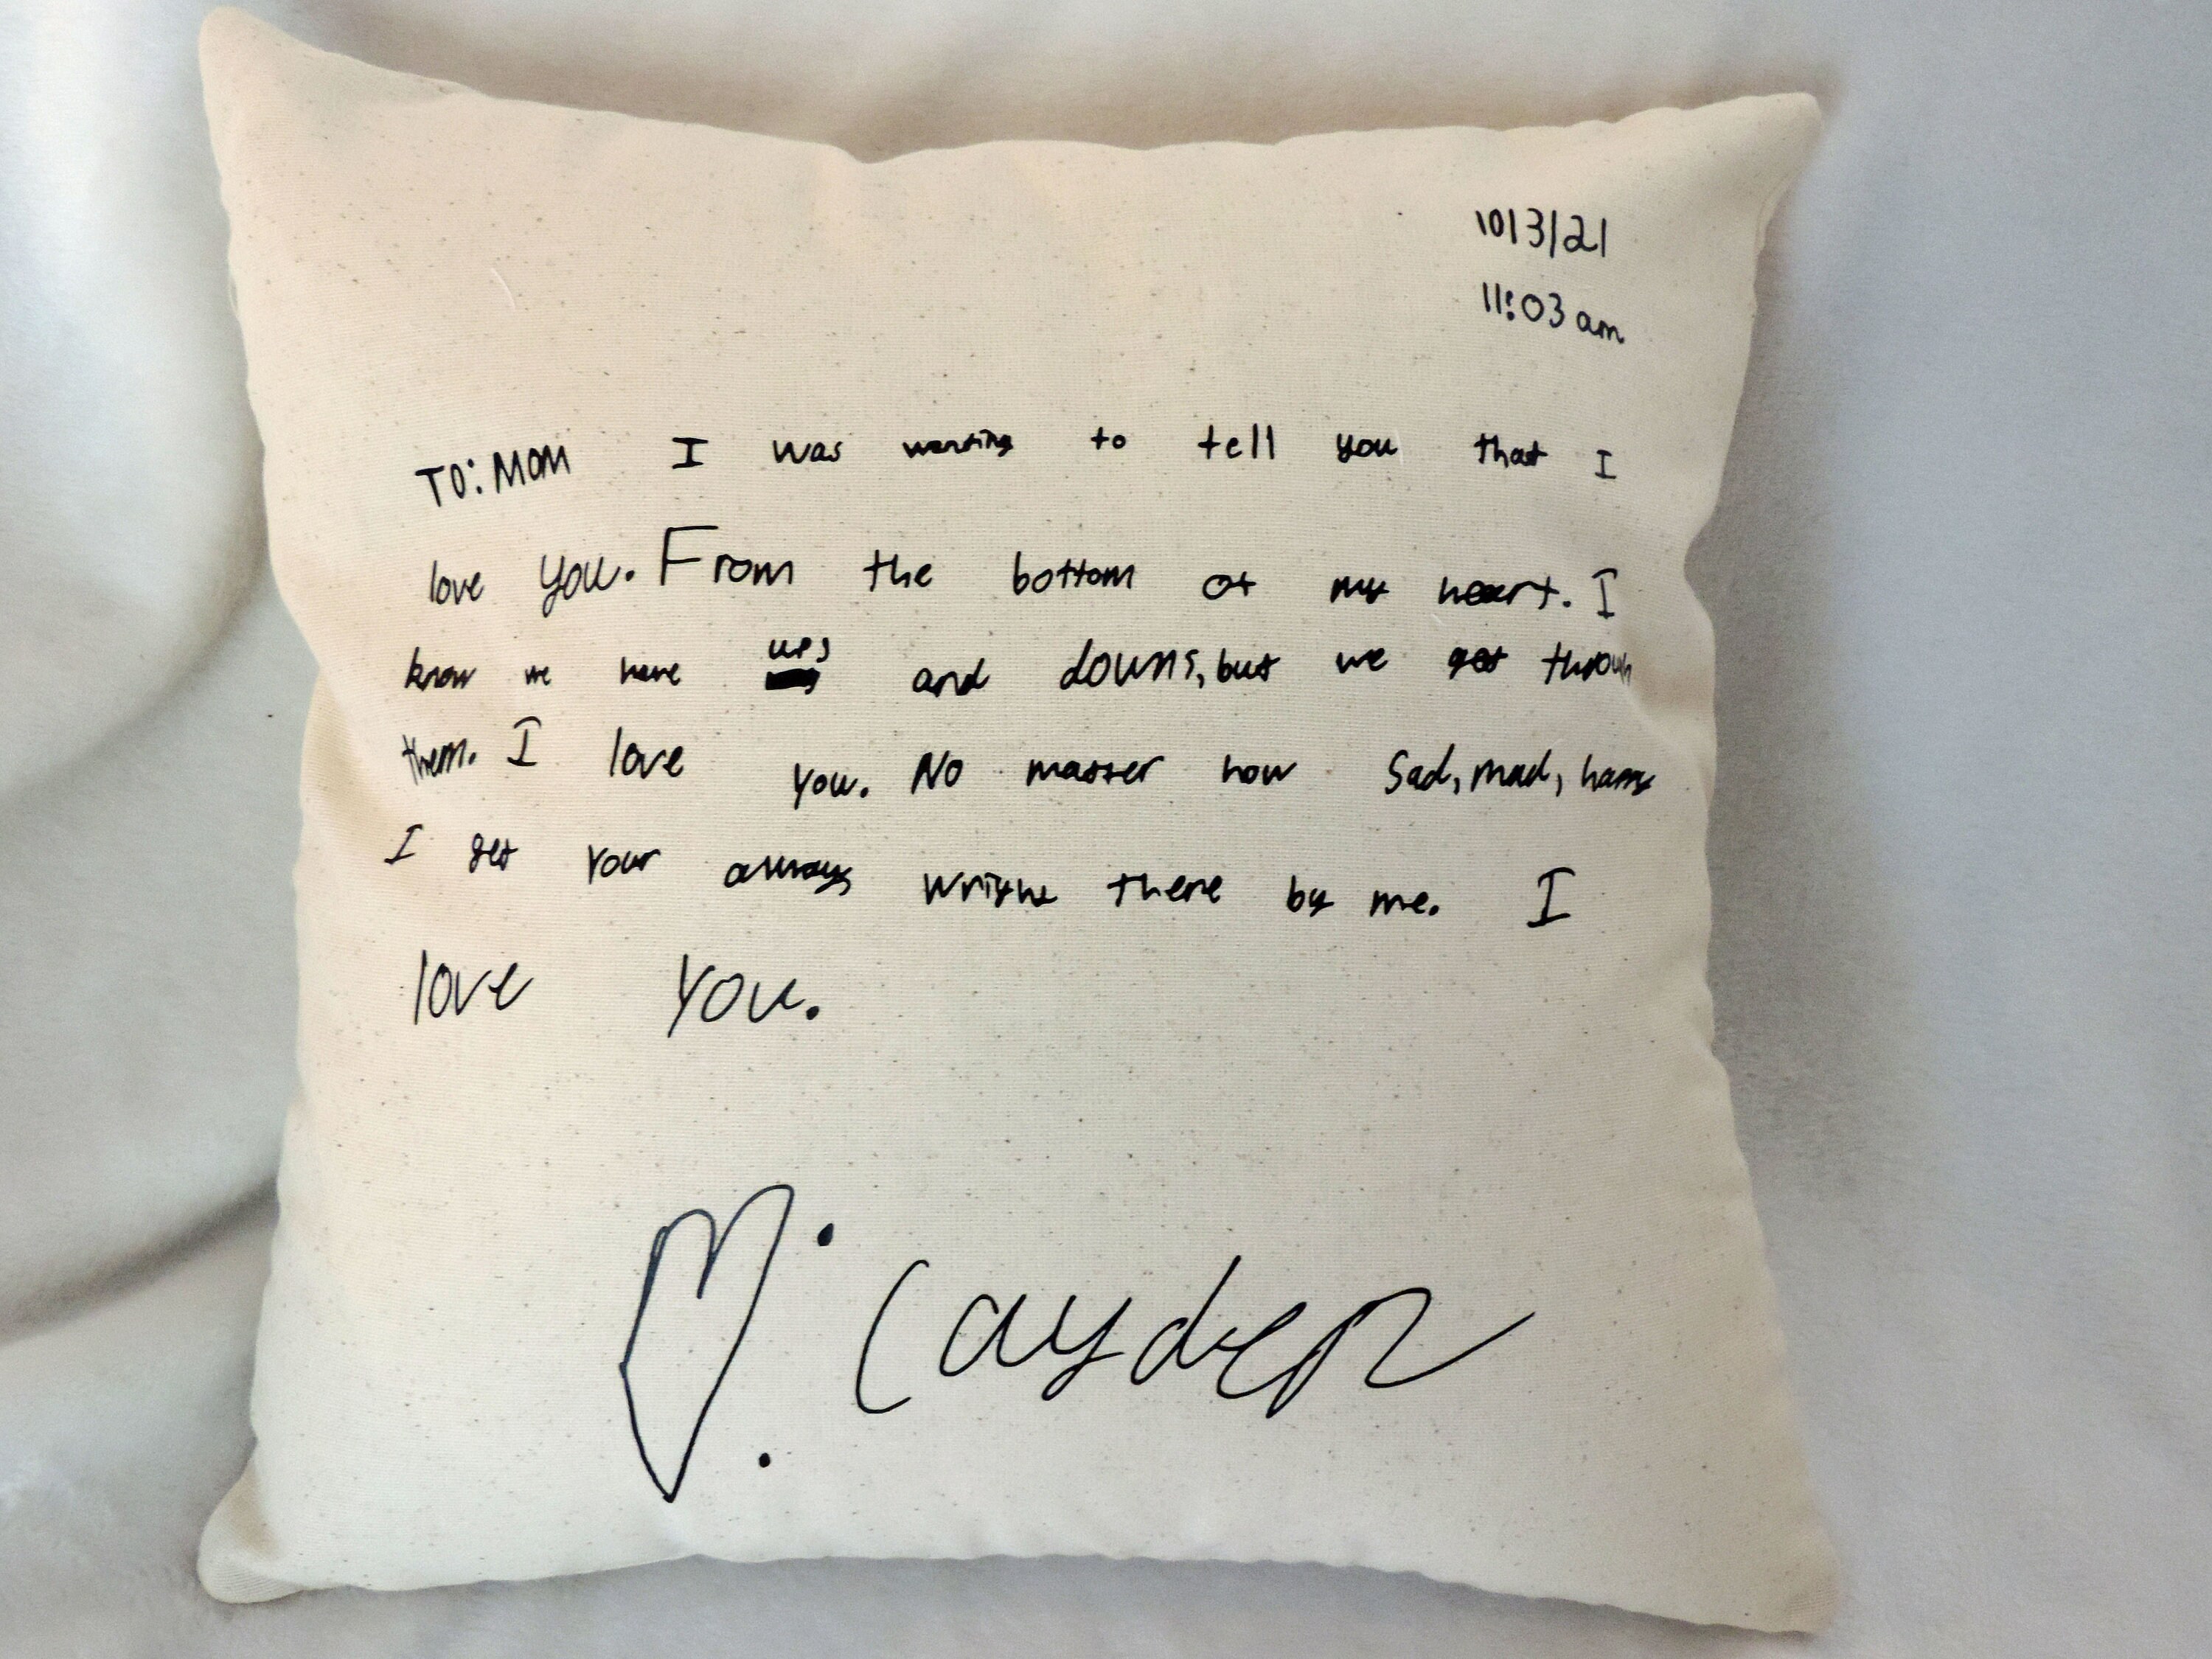 10/3/21
11:03 am
TO: MOM I was wanting to tell you that I
love you. From the bottom of my heart. I
know we have ups and downs, but we get throuh
them. I love you. No matter how Sad, mad, happy
I get your always wright there by me. I
love you.
Cayden